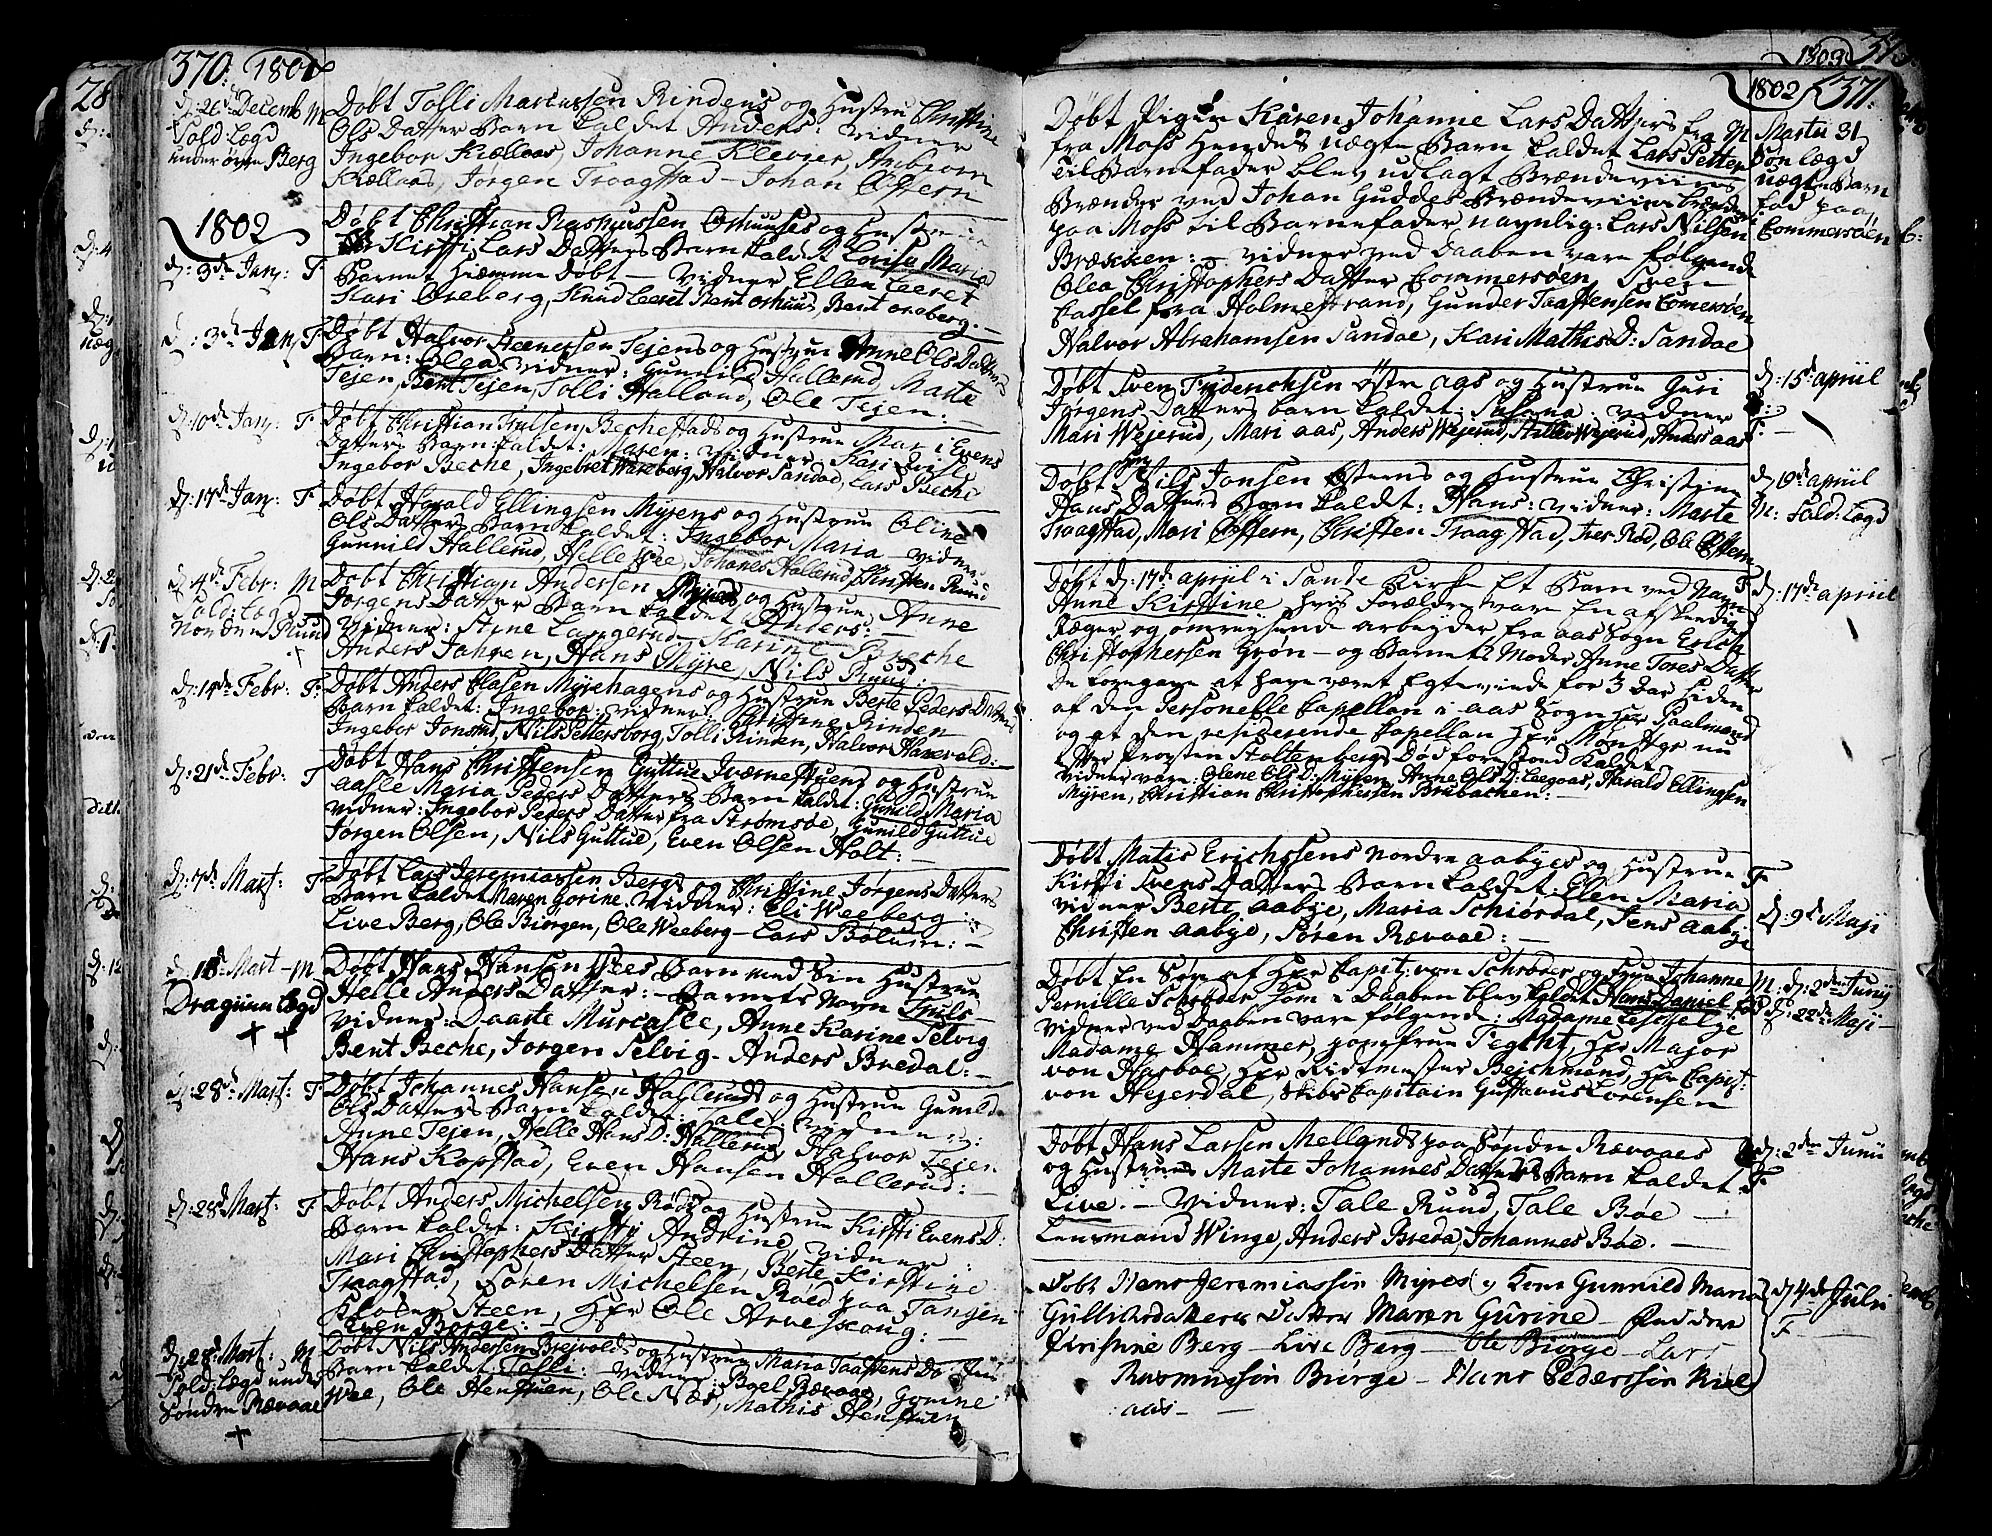 370. 1801
d: 26de Decemb M
Sold: Lægd
under øvre Berg
Døbt Tolli Marcussen Rindens og Hustrue Christine
Ols Datter Barn kaldet Anders: vidner
Ingebor Kiællaas, Johanne Klever, Ambiorn
Kiællaas, Jørgen Traagstad - Johan Østern
1802
d: 3de Janv: F
Døbt Christian Rasmussen Oshuuses og Hustrue
Kirsti Lars Datters Barn kaldet Lovisa Maria
Barnet hiæmme døbt - vidner Ellen Leeret
Kari Oreberg, Knud Leeret Bent Oshuus, Bent Oreberg. -
d: 3de Janv F
Døbt Halvor Steenersen Tejens og Hustrue Anne Ols Datters
Barn: Olea vidner: Gunnild Hallerud, Marte
Tejen, Bent Tejen, Tolli Halland, Ole Tejen: -
d: 10de Janv: F
Døbt Christian Trulsen Bechestads og Hustrue Mari Evens
Datters Barn kaldet: Maren: vidner: Kari
Ingebor Beche, Ingebret Wiveberg, Halvor Sandaa, Lars Beche
d: 17de Janv: F
Døbt Harald Ellingsen Myrens og Hustrue Oline
Ols Datter Barn kaldet: Ingebor Maria - vidner:
Gunnild Hallerud, Helle Wee, Johanes Hallerud, Christen Ruud
d: 4de Febr: M
Sold: Lægd
Nordre Ruud
Døbt Christian Andersen Myres og Hustrue Anne
Jørgens Datter Barn kaldet Anders: -
vidner: Stine Langerud Karine Beche
Anders Fahren, Hans Myre, Nils Ruud:
d: 14de Febr: F:
Døbt Anders Clasen Myrehagens og Hustrue Berte Peders Datters
Barn kaldet: Ingebor: vidner Christine Rinden
Ingebor Jonsrud, Nils Pettersborg, Tolli Rinden, Halvor Harevold: -
d: 21de Febr: F
Døbt Hans Christensen Guttue Qværnestuens og Hustrue
Aasle Maria Peders Datters Barn kaldet: Gunild Maria
vidner: Ingebor Peders Datter fra Strømsøe, Gunild Guttue
Jørgen Olsen, Nils Guttue, Even Olsen Holt: -
d: 7de Mart: F
Døbt Lars Jeremiassen Bergs og Christine Jørgens Datters
Barn kaldet Maren Gorine. vidner: Eli Weeberg
Live Berg, Ole Biørgen, Ole Weeberg - Lars Bølum: -
d: 18de Mart - M
Dragoun Lægd
Døbt Hans Hansen Wees Barn med Sin Hustrue
Helle Anders Datter: - Barnets Navn Truls -
vidner: Daarte Murcasle, Anne Karine Selvig
Bent Beche, Jørgen Selvig - Anders Bredal: -
d: 28de Mart: F
Døbt Johannes Hansen Hallerud og Hustrue Gunild
Ols Datters Barn kaldet: Tale: vidner:
Anne Tejen, Helle Hans D: Hallerud, Halvor Tejen
Hans Kopstad, Even Hansen Hallerud: -
d: 28de Mart: F
Døbt Anders Michelsen Røds og Hustrue Kirsti Evens D:
Barn kaldet: Kirsti Andrine vidner:
Mari Christophers Datter Steen, Berte Kirstine
Traagstad, Søren Michelsen Røed paa Tangen
Steen, Hr: Ole Arveschoug: -
Even Børge: -
d: 28de Mart: M
Sold: Lægd under
Søndre Rævaae
Døbt Nils Andersen Brejvolds og Hustrue Maria Taastens D:
Barn kaldet: Tolli: vidner: Boel Rævaae, Gorine
Wee, Ole Henstuen, Ole Næs, Mathis Henstuen
1803
1802 371.
Døbt Pigen Karen Johanne Lars Datters M
fra Moss Hendes uægte Barn kaldet Lars Petter
Til Barnefader blev udlagt Brændeviins
Brænder ved Johan Guddes Brændeviins
paa Moss til Barnefader navnlig: Lars Nilsen
Brækken: - vidner ved Daaben vare følgende
Olea Christophers Datter Commersøen
Cassel fra Holmestrand, Gunder Taastensen Comersøen
Halvor Abrahamsen Sandae, Kari Mathis D: Sandae
Martii 31
Søn lægd
uægte Barn
fød paa
Commersøen
Døbt Sven Fryderichsen Østre Aas og Hustrue Guri
Jørgens Datters barn kaldet: Susana: vidner
Mari Wejerud, Mari Aas, Anders Wejerud, Wejerud, Anders Aas
d: 15de april
F: -
Døbt Nils Jonsen Østerns og Hustrue Christine
Hans Datters Barn kaldet: Hans: vidner: Marte
Traagstad, Mari Østern, Christen Traagstad, Iver Rød, Ole Østern
d: 19de apriil
M: Sold: Lægd
Døbt d: 17de apriil i Sande Kirke Et Barn ved Navn F
Anne Kirstine hvis Forældre vare En afskendiget
Ræger og omreysende arbeyder fra Aas Sogn Erich
Christophersen Grøn - og Barnets Moder Anne Tores Datter
De foregave at have været Egteviede for 3 Aar Siden
af den Personelle Capellan i Aas Sogn Hr: Paalmand
og at den residerende Capellan Hr: Møn Hgr nu
efter Provsten Stoltenbergs Død forestoed Kaldet
vidner vare: Olene Ols D: Myren, Anne Ols D: Leegaas, Harald Ellingsen
Myren, Christian Christophersen Brubachen: -
d: 17de april
Døbt Matis Erichssens Nordre Aabyes og Hustrue F
Kirsti Svens Datters Barn kaldet: Elen Maria
vidner Berte Aabye, Maria Schiørdal, Jens Aabye
Christen Aabye, Søren Rævaae: -
d: 9de Maji
Døbt En Søn af Hr: Capit: von Schrøder og Frue Johanne
Pernille Schrøder som i Daaben blev kaldet Hans Daniel
vidner ved Daaben vare følgende: Madame
Madame Hammer, jomfrue Tegtht, Hr: Major
von Harboe, Hr: Ridtmester Bejchmand, Hr: Capit:
von Hejerdal, Skibs Capitain Gustavus Lorensen
M: d: 2den Junij
fød d: 22de Maji -
Døbt Hans Larsen Mellgnds paa Søndre Rævaaes
og Hustrues Marte Johannes Datters Barn kaldet
Live. - vidner: Tale Ruud, Tale Bøe -
Lensmand Winge, Anders Breda, Johannes Bøe. -
d: 2den Junii
F
Døbt Hans Jeremiassøn Myres og Kone Gunnild Maria
Gullichsdatters Datter Maren Gurine - Faddere
Christine Berg - Live Berg - Ole Biørge - Lars
Rasmussøn Biørge - Hans Pederssøn Kiel
aas -
d 4de Julii
F -